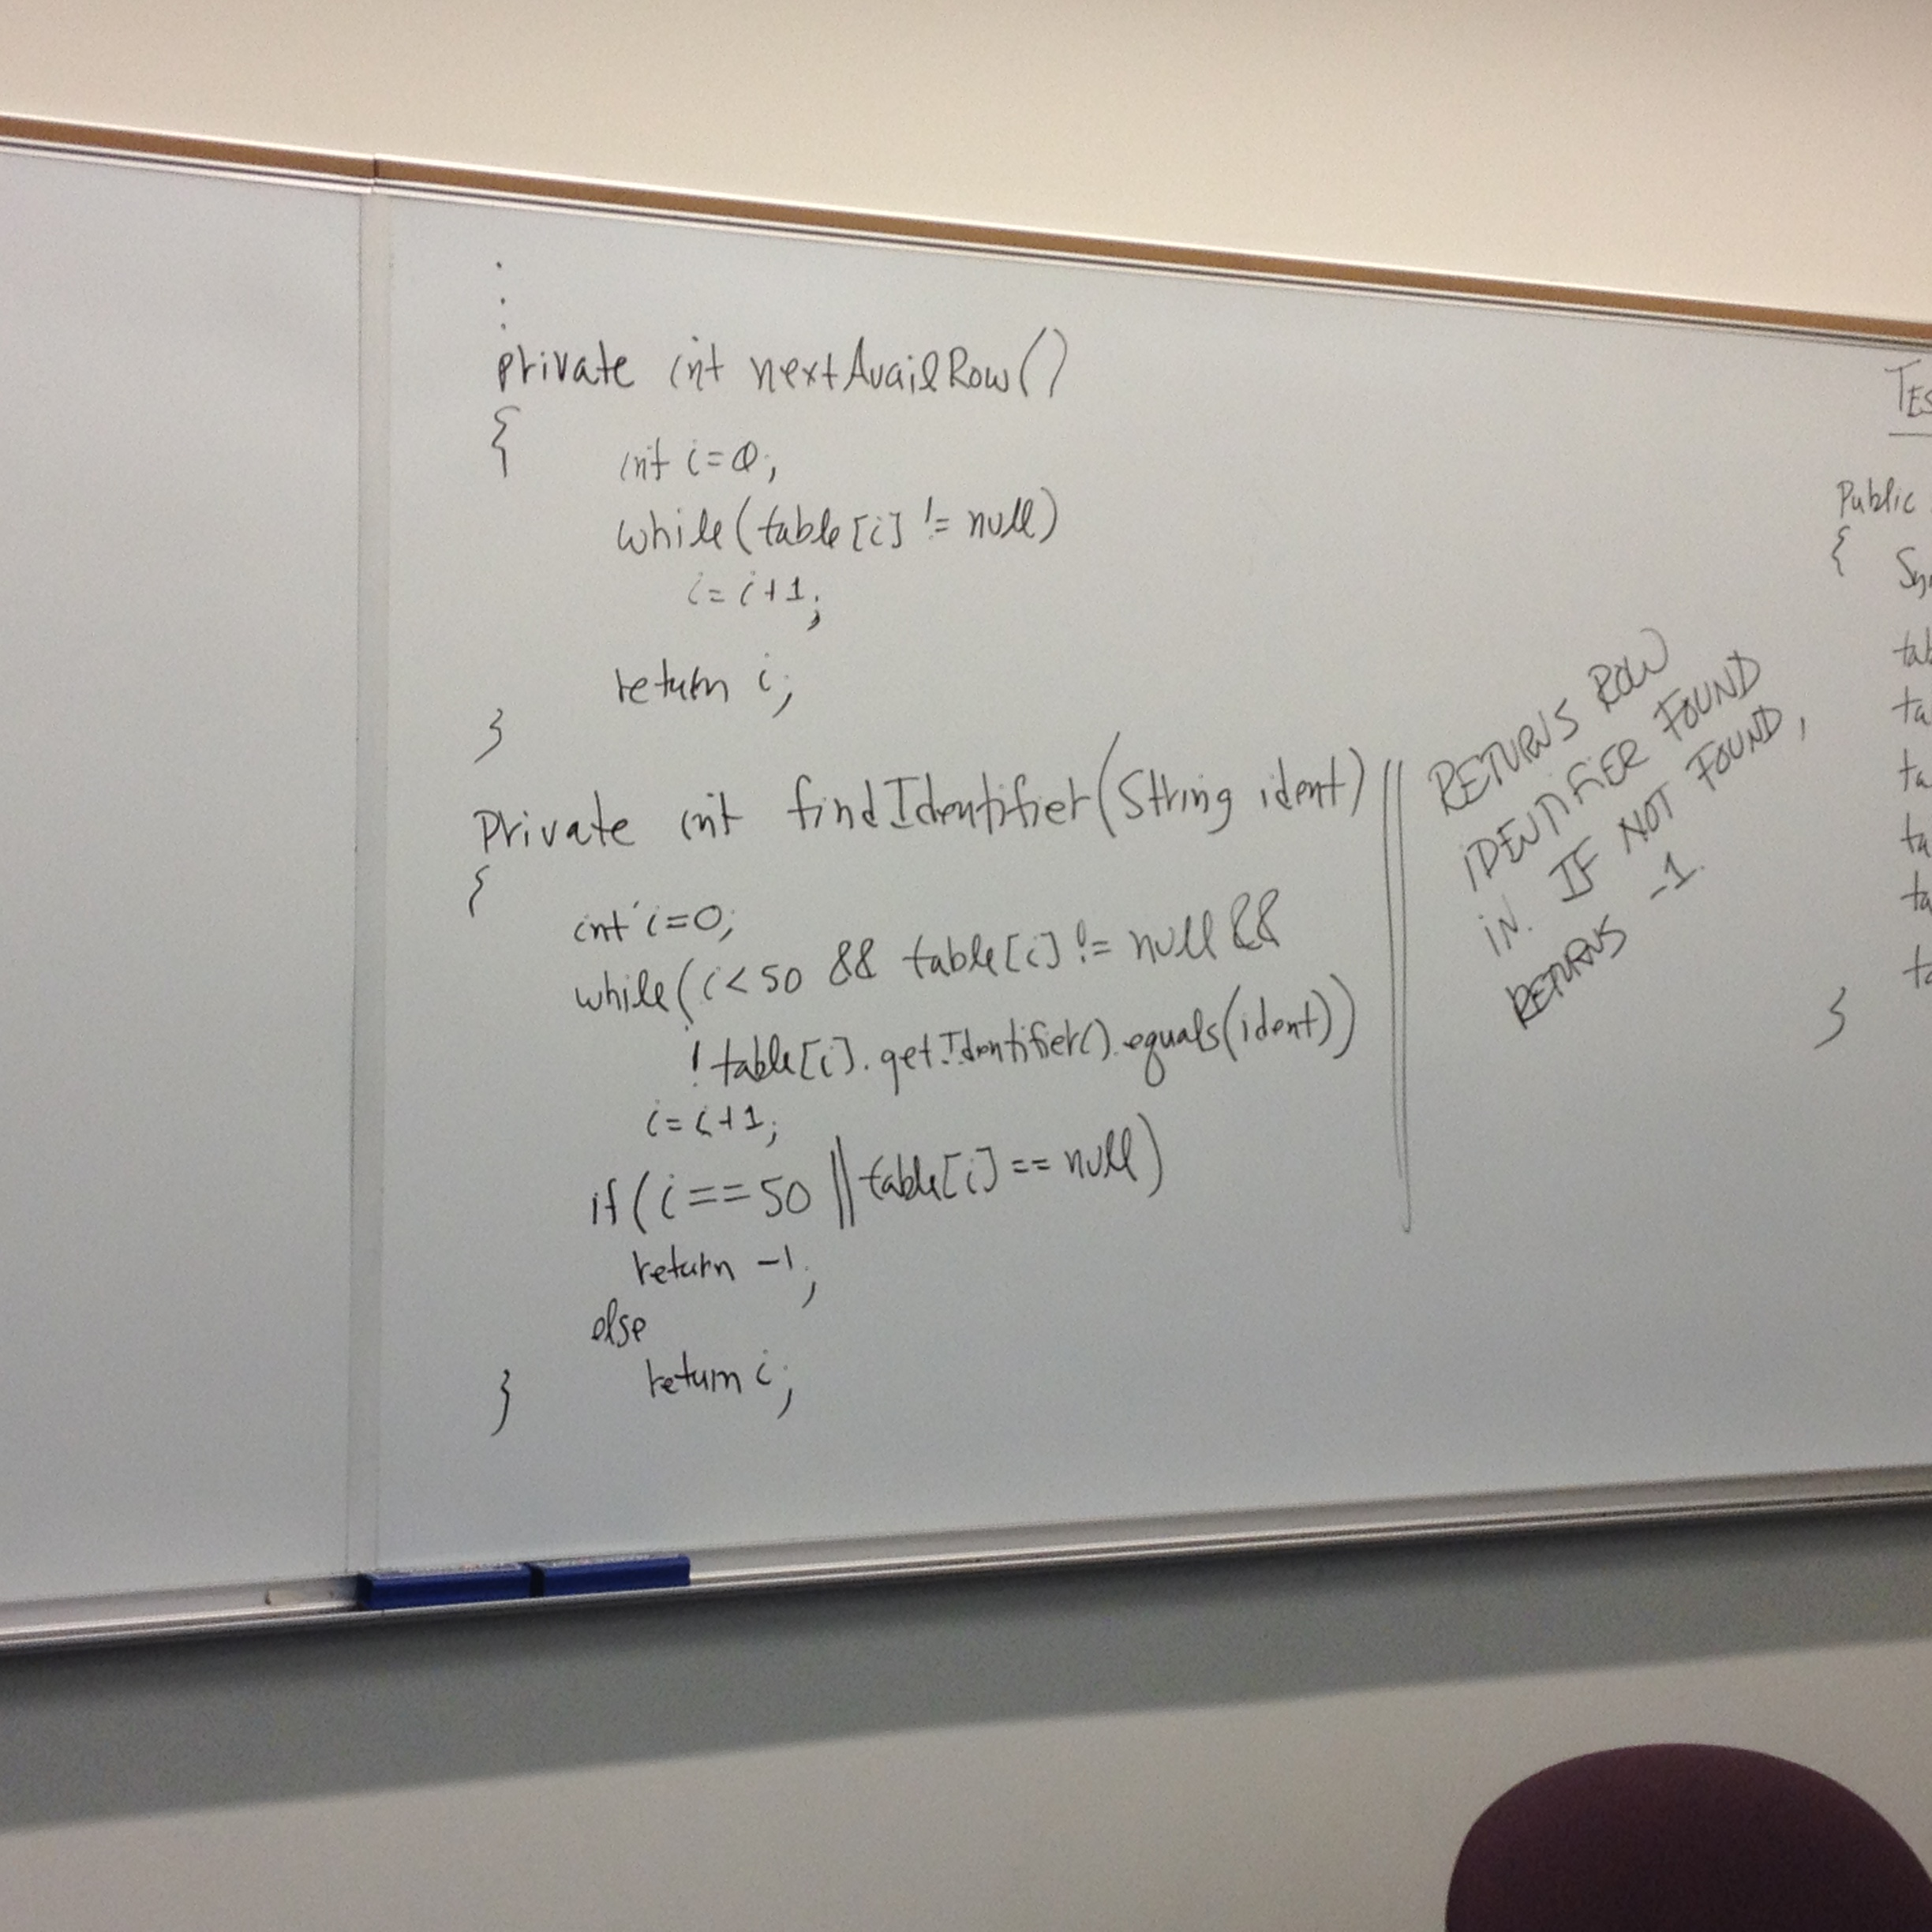 private int nextAvailRow()
{
int i=0;
while(table[i] != null)
i=i+1;
return i;
}
Private int findIdentifier(String ident)
{
int i=0;
while(i<50 && table[i] != null &&
!table[i].getIdentifier().equals(ident))
i=i+1;
if(i==50 || table[i]==null)
return -1;
else
return i;
}
RETURNS ROW
IDENTIFIER FOUND
IN. IF NOT FOUND,
RETURNS -1.
TES
Public
{
Sy
tab
ta
ta
ta
ta
ta
}